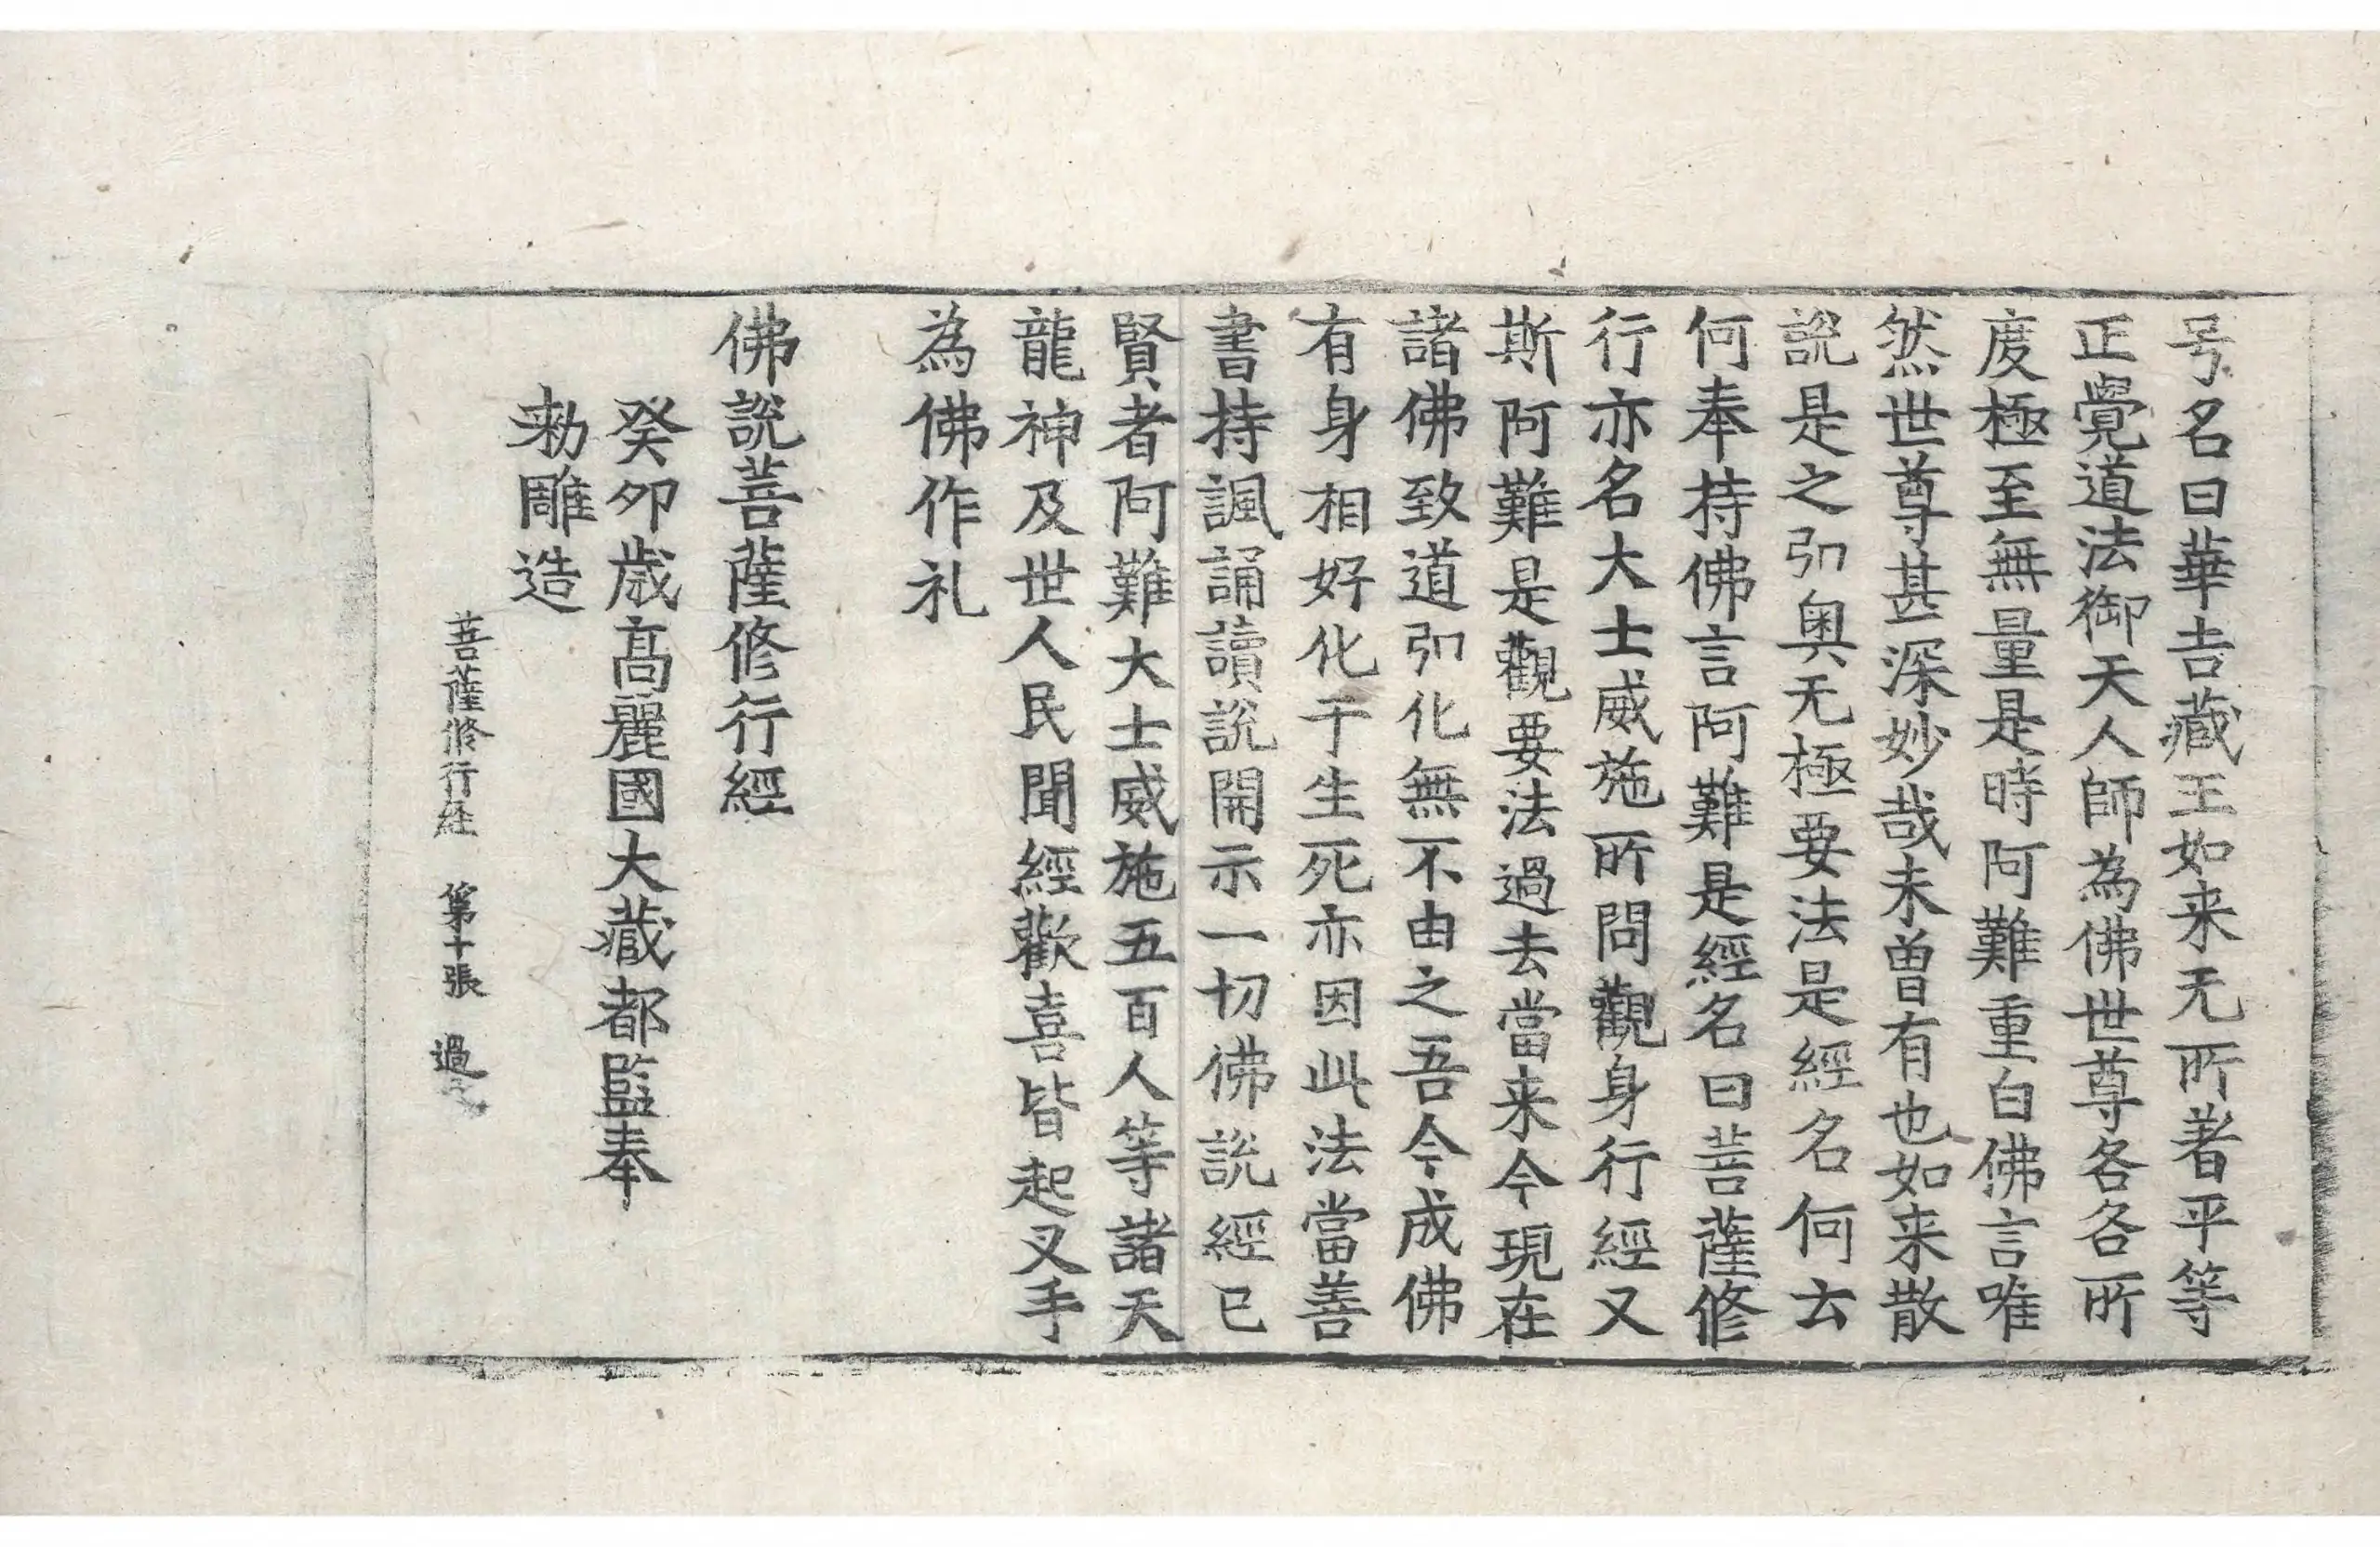 号名曰華吉藏王如来无所著平等
正覺道法御天人師為佛世尊各各所
度極至無量是時阿難重白佛言唯
然世尊甚深妙哉未曽有也如来散
說是之引奥无極要法是經名何云
何奉持佛言阿難是經名曰菩薩修
行亦名大士威施所問觀身行經又
斯阿難是觀要法過去當来今現在
諸佛致道引化無不由之吾今成佛
有身相好化于生死亦因此法當善
書持諷誦讀說開示一切佛說經已
賢者阿難大士威施五百人等諸天
龍神及世人民聞經歡喜皆起叉手
為佛作礼
佛說菩薩修行經
癸卯歲髙麗國大藏都監奉
勑雕造
菩薩修行経 第十張 過